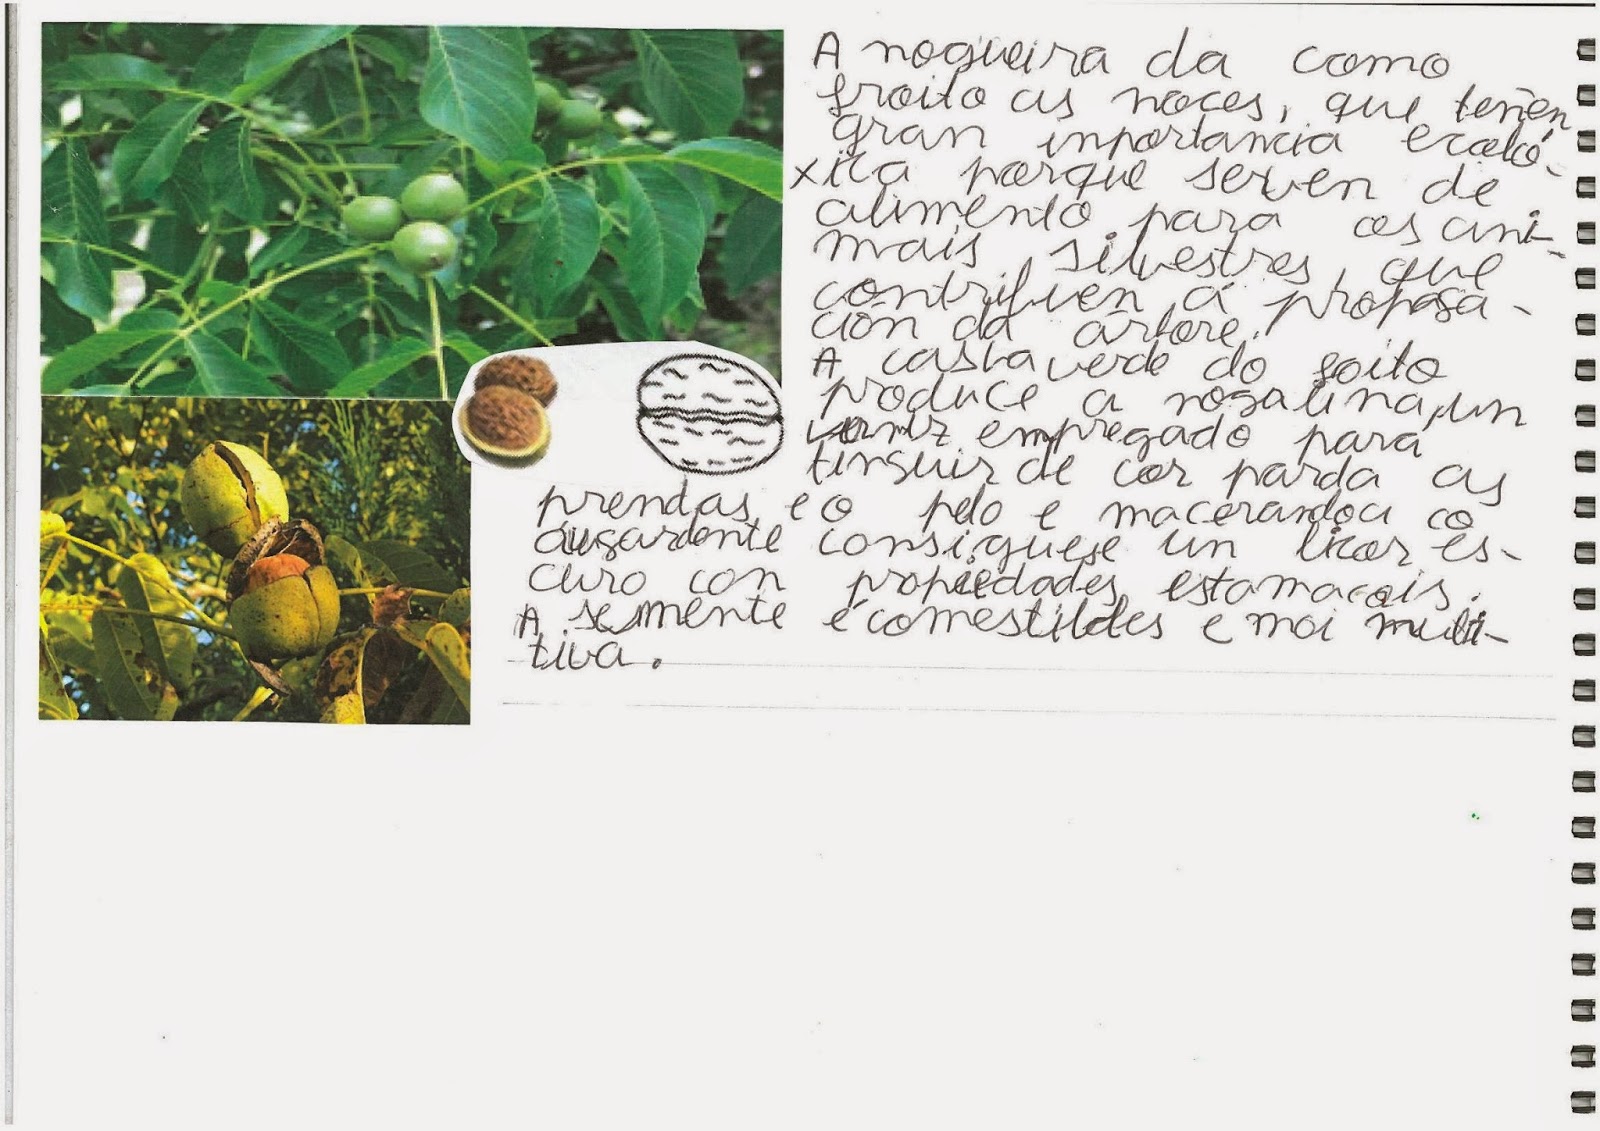 A nogueira da como
froito as noces, que teñen
gran inportancia ecoló-
xica porque serven de
alimento para os ani-
mais silvestres, que
contribuen á propaga-
ción da árbore.
A casca verde do foito
produce a nogalina, un
verniz empregado para
tinguir de cor parda as
prendas e o pelo e macerandoa co
augardente consiguese un licor es-
curo con propiedades estamacais.
A semente é comestibles e moi nutri-
tiva.